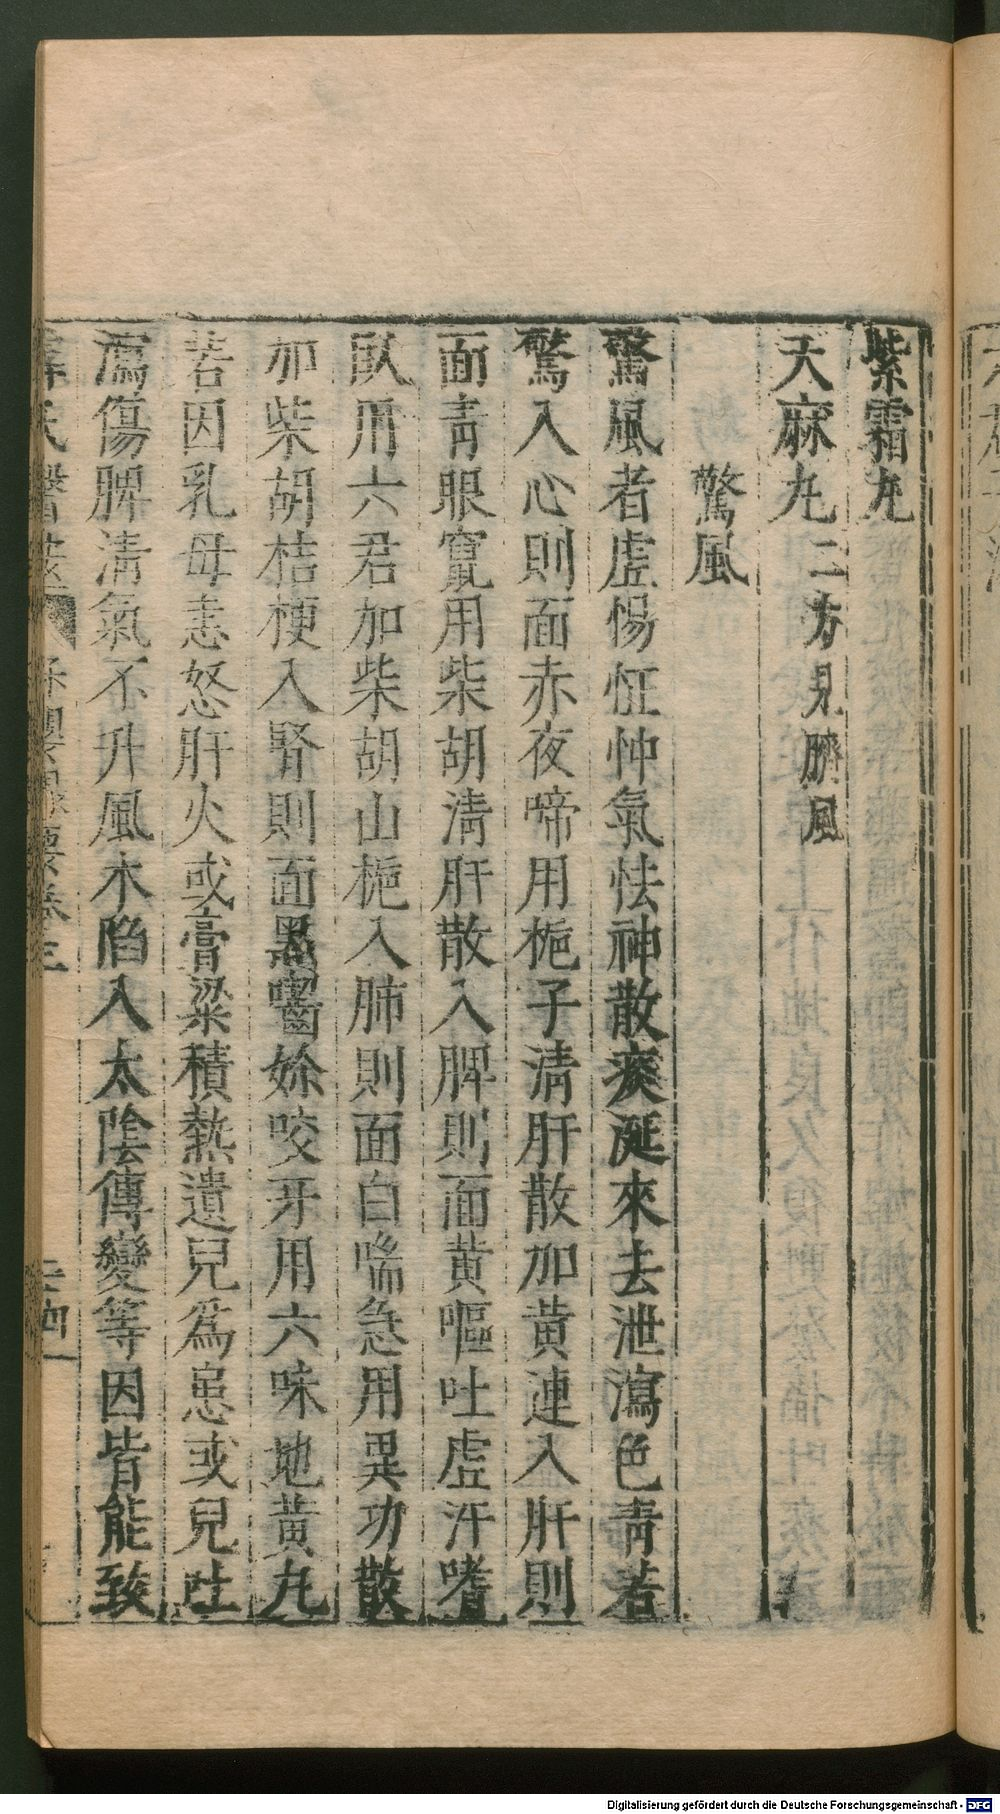 紫霜丸
天麻丸二方見臍風
驚風
驚風者虛惕怔忡氣怯神散痰涎來去泄瀉色靑若
驚入心則面赤夜啼用梔子淸肝散加黃連入肝則
面靑眼竄用柴胡淸肝散入脾則面黃嘔吐虛汗嗜
臥用六君加柴胡山梔入肺則面白喘急用異功散
加柴胡桔梗入腎則面黑嚙妳咬牙用六味地黃丸
若因乳母恚怒肝火或膏粱積熱遺兒爲患或兒吐
瀉傷脾淸氣不升風木陷入太陰傳變等因皆能致
薛氏醫案 保嬰撮要卷三
Digitalisierung gefördert durch die Deutsche Forschungsgemeinschaft - DFG